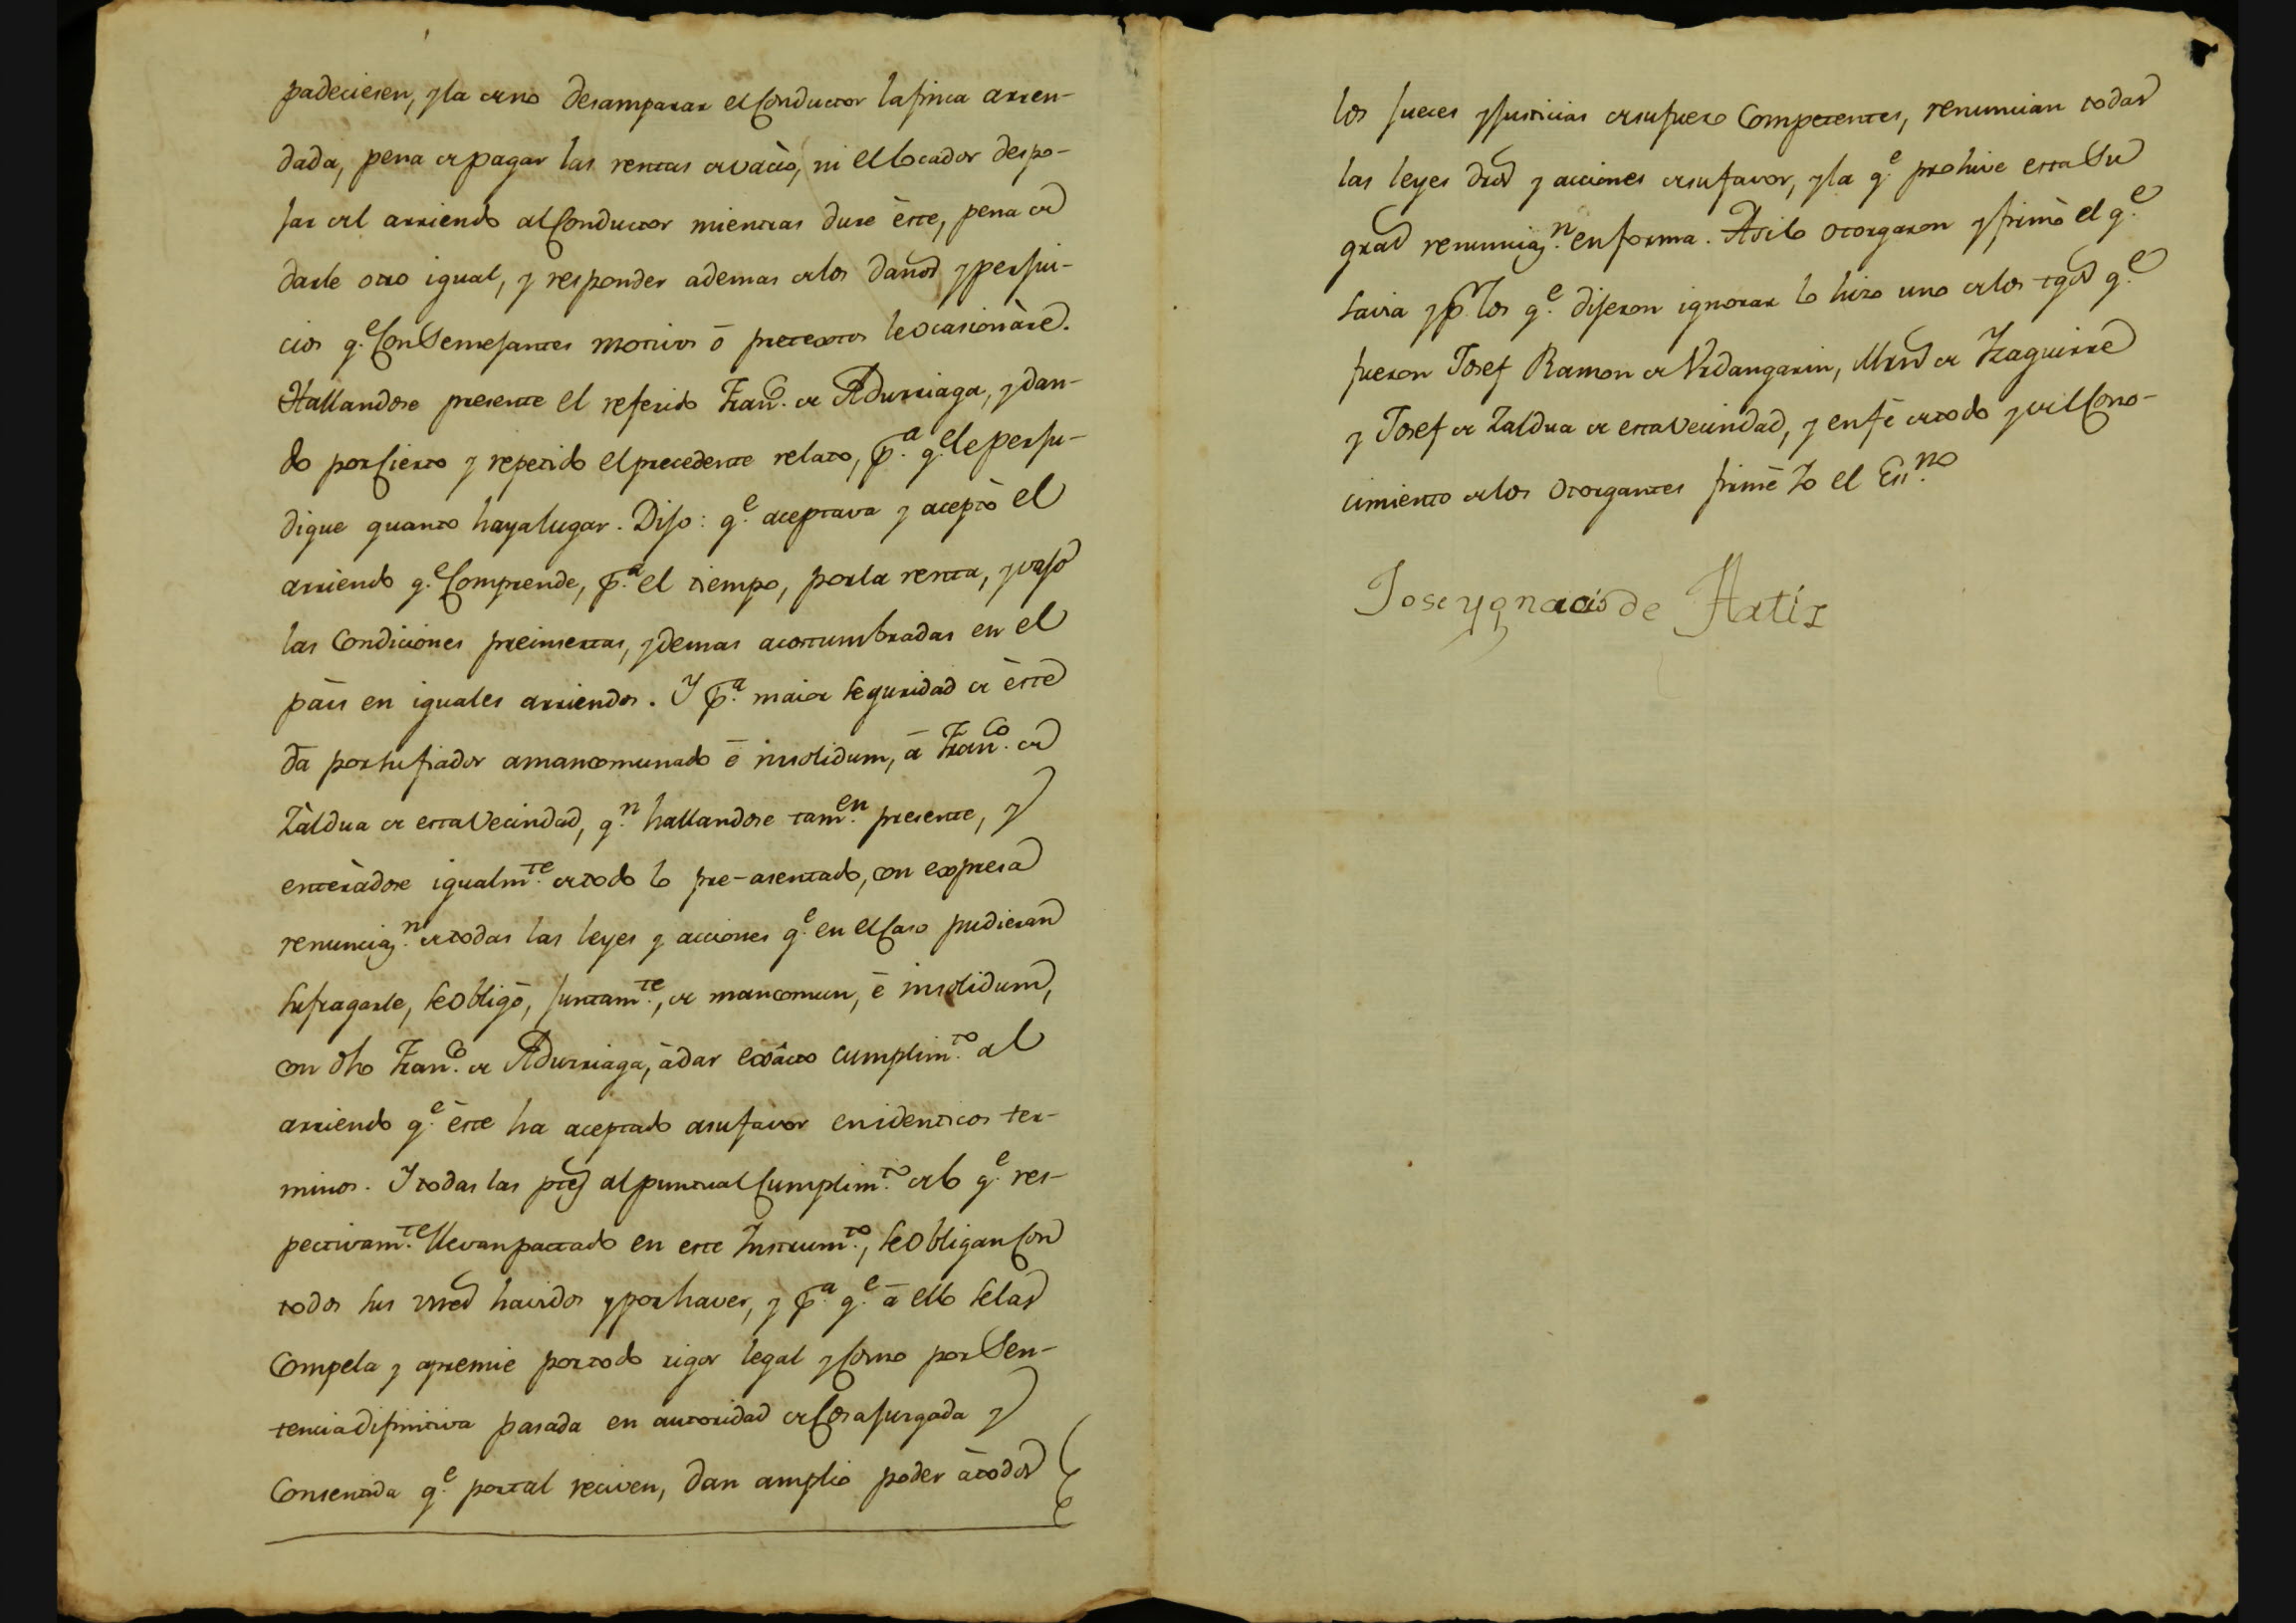 padeciesen, y la de no desamparar el Conductor la finca arren-
dada, pena de pagar las rentas de vacio, ni el locador despo-
jar del arriendo al Conductor mientras dure èste, pena de
darle otro igual, y responder ademas de los daños y perjui-
cios q.e Con Semejantes motivos ó pretextos le ocasionàre.
Hallandose presente el referido Fran.co de Adurriaga, y dan-
do por Cierto y repetido el precedente relato, p.a q.e le perju-
dique quanto haya lugar. Dijo: q.e aceptava y aceptò el
arriendo q.e Comprende, p.a el tiempo, por la renta, y vajo
las Condiciones preinsertas, y demas acostumbradas en el
pàis en iguales arriendos. Y p.a maior seguridad de èste
dà por su fiador amancomunado è insolidum, à Fran.co de
Zàldua de esta Vecindad, q.n hallandose tam.en presente, y
enteràdose igualm.te de todo lo pre-asentado, con expresa
renunciaz.n de todas las leyes y acciones q.e en el Caso pudieran
sufragarle, se obligò, juntam.te, de mancomun, è insolidum,
con dho Fran.co de Adurriaga, à dar exàcto cumplim.to al
arriendo q.e èste ha aceptado a su favor en identicos ter-
minos. Y todas las ptes al puntual Cumplim.to de lo q.e res-
pectivam.te llevan pactado en este Instrum.to, se obligan Con
todos sus vnes havidos y por haver, y p.a q.e à ello se las
Compela y apremie por todo rigor legal y Como por Sen-
tencia difinitiva pasada en autoridad de Cosa juzgada y
Consentida q.e por tal reciven, dan amplio poder à todos
los Jueces y Justicias de su fuero Competentes, renuncian todas
las leyes dros y acciones de su favor, y la q.e prohive esta Su
gral renunciaz.n en forma. Asi lo otorgaron y firmò el q.e
savia y p.r los q.e dijeron ignorar lo hizo uno de los tgos q.e
fueron Josef Ramon de Vrdangarin, de Yzaguirre
y Josef de Zaldua de esta Vecindad, y en fè de todo y del Cono-
cimiento de los Otorgantes firmè Yo el Ess.no
Jose ygnacio de